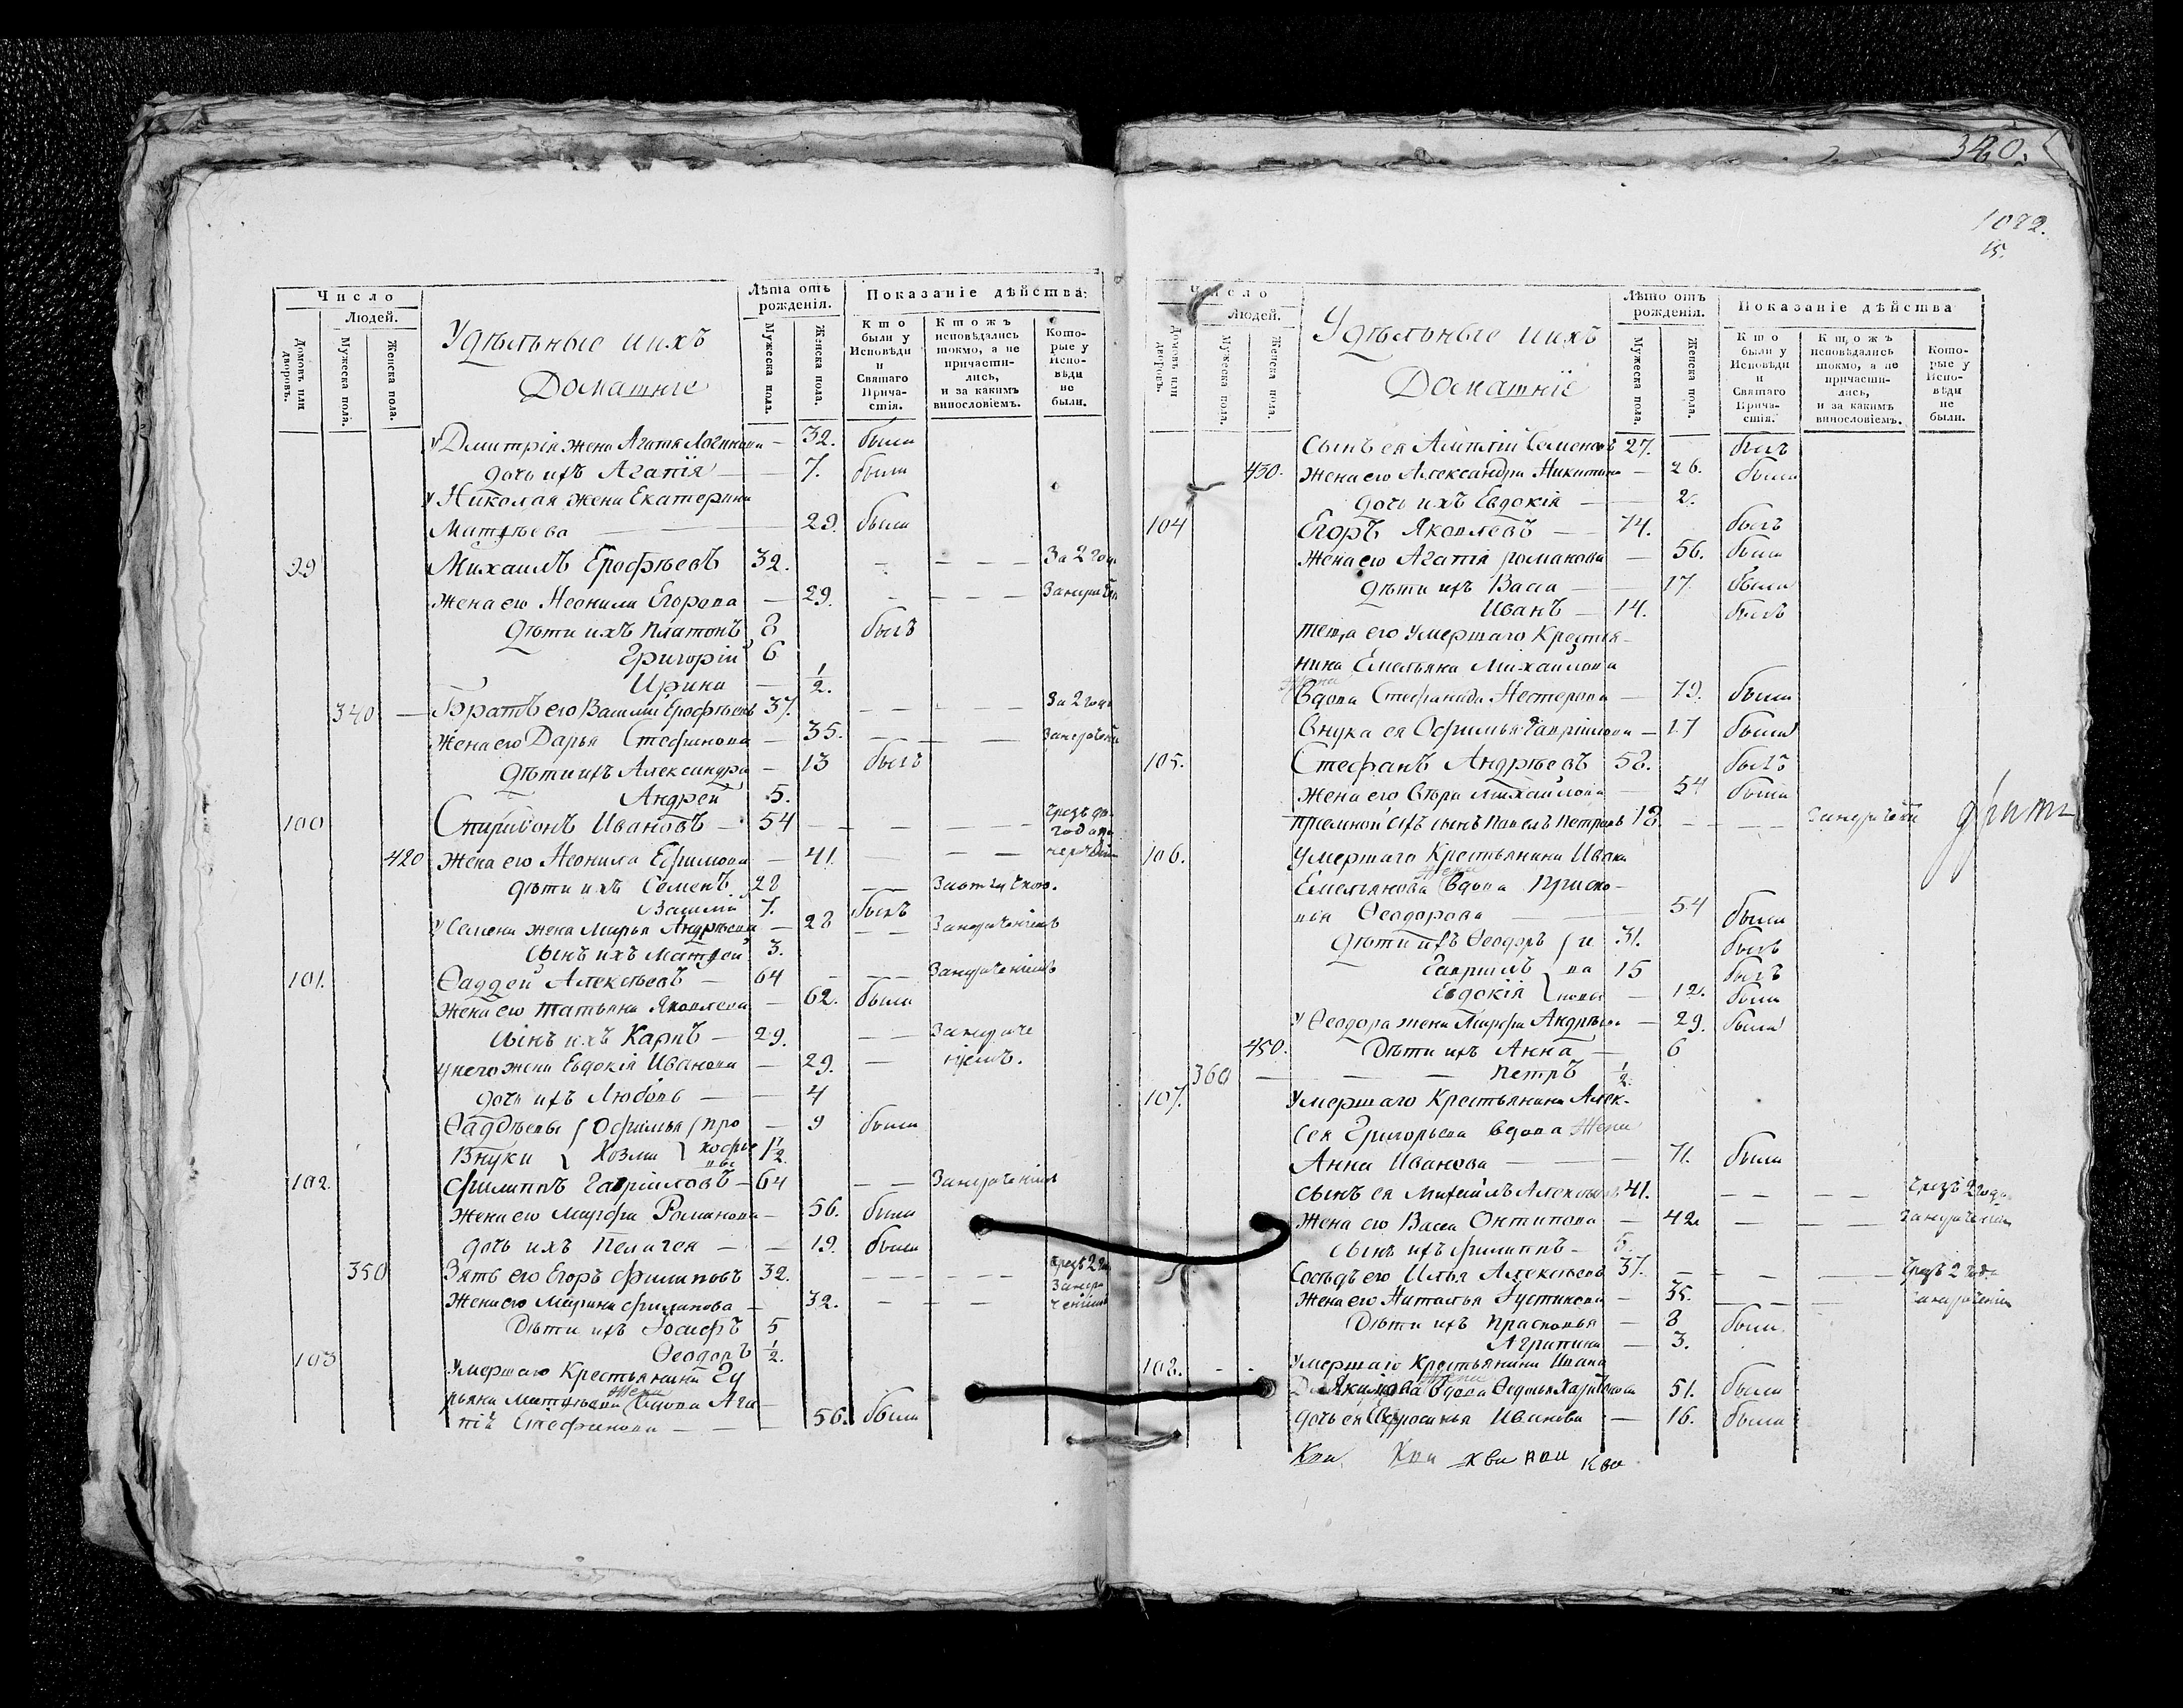 Число
Людей.
Домовъ или дворовъ.
Мужеска пола.
Женска пола.
Удѣльные ихъ
Домашніе
Лѣта отъ рожденія.
Мужеска пола.
Женска пола.
Показаніе дѣйства:
Кто были у Исповѣди и Святаго Прича-стія.
Ктожъ исповѣдались токмо, а не причасти-лись, и за какимъ винословіемъ.
Кото-рые у Испо-вѣди не были.
у Дмитрія жена Агафья Логинова — 32. была
дочь ихъ Агапія — — 7. была
у Николая жена Екатерина
Матѳѣева — 29. была
99 Михаилъ Ерофѣевъ 32. — — — За 2 года
жена его Неонила Егорова — 29. — — —
дѣти ихъ Платонъ 8 былъ
Григорій 6
Ирина — 1/2.
340 — Братъ его Василій Ерофѣевъ 37. — — — За 2 года
жена его Дарья Стефанова — 35. — — —
дѣти ихъ Александра — 13 былъ
Андрей 5.
100 Спиридонъ Ивановъ — 54 — — —
420 жена его Неонила Ефимова — 41. — —
дѣти ихъ Семенъ 28 — — За отлучкою.
Василій 7. былъ
у Семена жена Марья Андрѣева — 28 — — Занереченіемъ
сынъ ихъ Матѳей 3.
101. Ѳаддей Алексѣевъ — 64 — — — Занереченіемъ
жена его Татьяна Яковлева — 62. была
сынъ ихъ Карпъ — 29. — — Занерече
у него жена Евдокія Иванова — 29. — ніемъ.
дочь ихъ Любовь — — 4
Ѳаддѣевы Офимья про — 9 была
Внуки Козма кофье вы 1 1/2.
102. Филиппъ Гавріиловъ — 64 — — Занереченіемъ
жена его Марфа Романова — 56. была
дочь ихъ Пелагея — — 19. была
350 Зять его Егоръ Филиповъ 32. — — — Чрезъ 2 года
жена его Марина Филипова — 32. — — — Занере ченіемъ
Дѣти ихъ Іосифъ 5
Ѳеодоръ 1/2.
103 Умершаго Крестьянина Гу
рьяна Матѳѣева жена вдова Ага
пія Стефанова — — — 56. была
340.
15.
Число
Людей.
Домовъ или дворовъ.
Мужеска пола.
Женска пола.
Удѣльные ихъ
Домашніе
Лѣто отъ рожденія.
Мужеска пола.
Женска пола.
Показаніе дѣйства
Кто были у Исповѣди и Святаго Прича-стія.
Ктожъ исповѣдались токмо, а не причасти-лись, и за какимъ винословіемъ.
Кото-рые у Испо-вѣди не были.
Сынъ ея Семеновъ 27. былъ
430. жена его Александра Никитина — 26. была
дочь ихъ Евдокія — — 2.
104 Егоръ Яковлевъ — — 74. былъ
жена его Агапія Романова — 56. была
дѣти ихъ Васса — — 17. была
Иванъ — 14. былъ
теща его умершаго Крестья-
нина Емельяна Михаилова
жена
Вдова Стефанида Нестерова — 79. была
Внука ея Офимья Гавріилова — 17 была
105. Стефанъ Андрѣевъ 58. былъ
жена его Михайлова — 54 была
приемной ихъ сынъ Павелъ Петровъ 18 — — — Занереченіемъ
106. Умершаго Крестьянина Ивана
Емельянова жена вдова Праско-
вія Ѳеодорова — 54 была
дѣти ихъ Ѳеодоръ 31. былъ
Гавріилъ 15 былъ
Евдокія — 12. была
у Ѳеодора жена Марфа Андрѣева — 29. была
450. Дѣти ихъ Анна — 6
360 — — — Петръ 1/2.
107. Умершаго Крестьянина Алек-
сея Григорьева вдова жена
Анна Иванова — — — 71. была
сынъ ея Михаилъ Алексѣевъ 41. — — — — Чрезъ 2 года
жена его Васса Онтипова — 42. — — — Занереченіемъ
сынъ ихъ Филиппъ — 5.
Сосѣдъ его Илья Алексѣевъ 37. — — — — Чрезъ 2 года
жена его Наталья Іустинова — 35. — — — Занереченіемъ
Дѣти ихъ Прасковья — 8 была.
Агрипина — 3.
108. — — Умершаго Крестьянина Ивана
Якимова жена вдова Ѳедосья Харитонова 51. была
дочь ея Ефросинья Иванова — 16. была